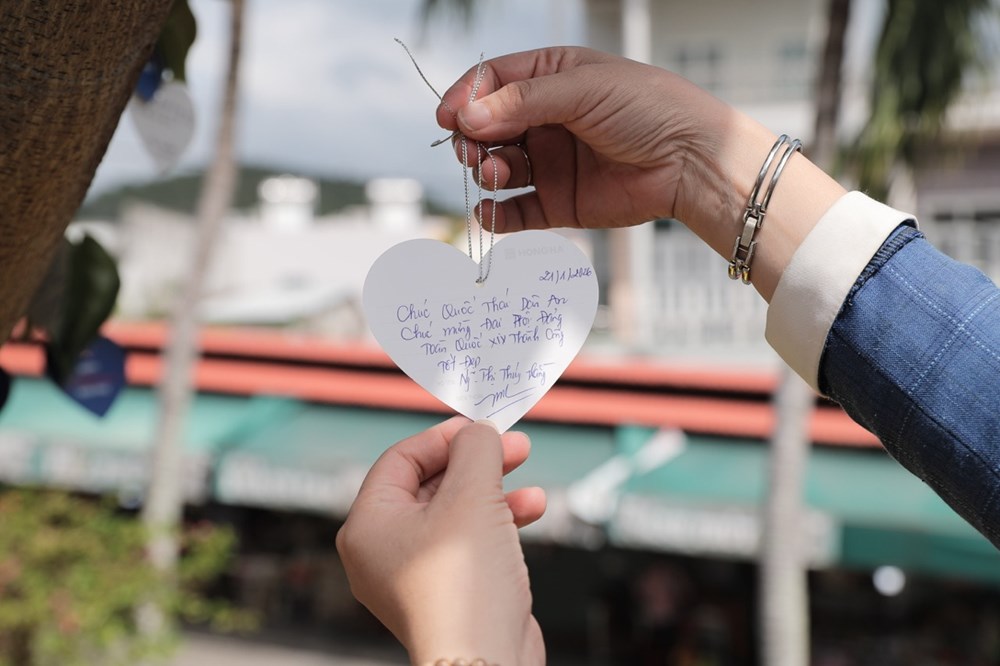 HONGHA
21/1/2026
Chúc Quốc Thái Dân An
Chúc mừng Đại Hội Đảng
Toàn Quốc XIV Thành Công
Tốt Đẹp
Thị Thúy Hằng